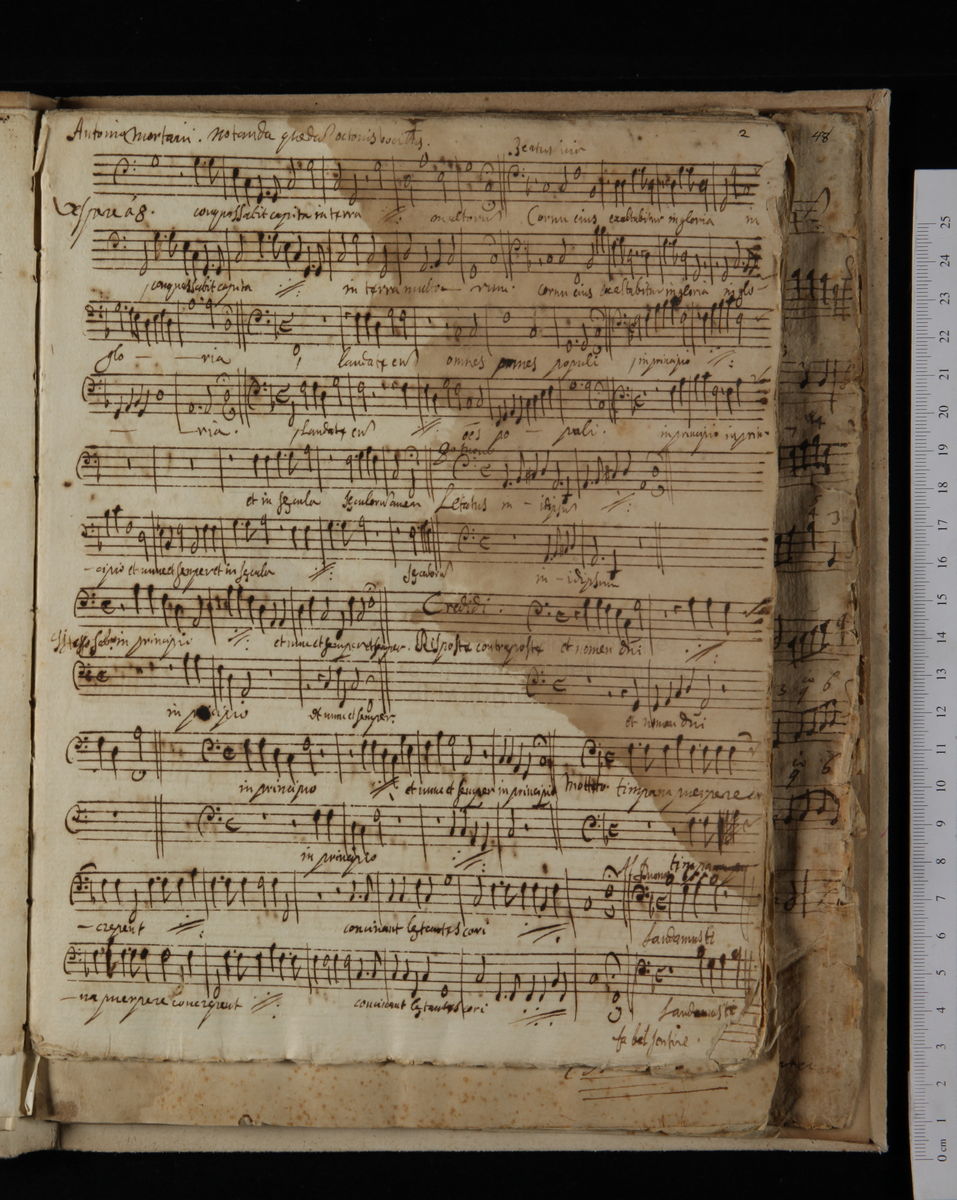 Antonius Mortari. Notanda quædã octonis vocibus. 2
48
Beatus vir
Vespere à 8. conquassabit capita in terra multorum Cornu eius exaltabitur in gloria in
conquassabit capita in terra multo - rum. cornu eius exaltabitur in gloria in glo -
glo - ria laudate eũ omnes omnes populi in principio
- ria. Laudate eũ oẽs po - puli. in principio in prin -
et in secula seculorũ amen Letatus in - idipsũ
- cipio et nunc et semper et in secula seculorũ in - idipsum
Credidi.
in principio et nunc et semper et semper. Risposte contraposte et nomen dñi
in principio et nunc et semper. et nomen dñi
in principio et nunc et semper in principio Mottetto. timpana
in principio
timpana
- crepent concinant letantes cori Laudamus te
concrepent concinant letantes cori Laudamus te
fa bel sentire.
0 cm 1 2 3 4 5 6 7 8 9 10 11 12 13 14 15 16 17 18 19 20 21 22 23 24 25